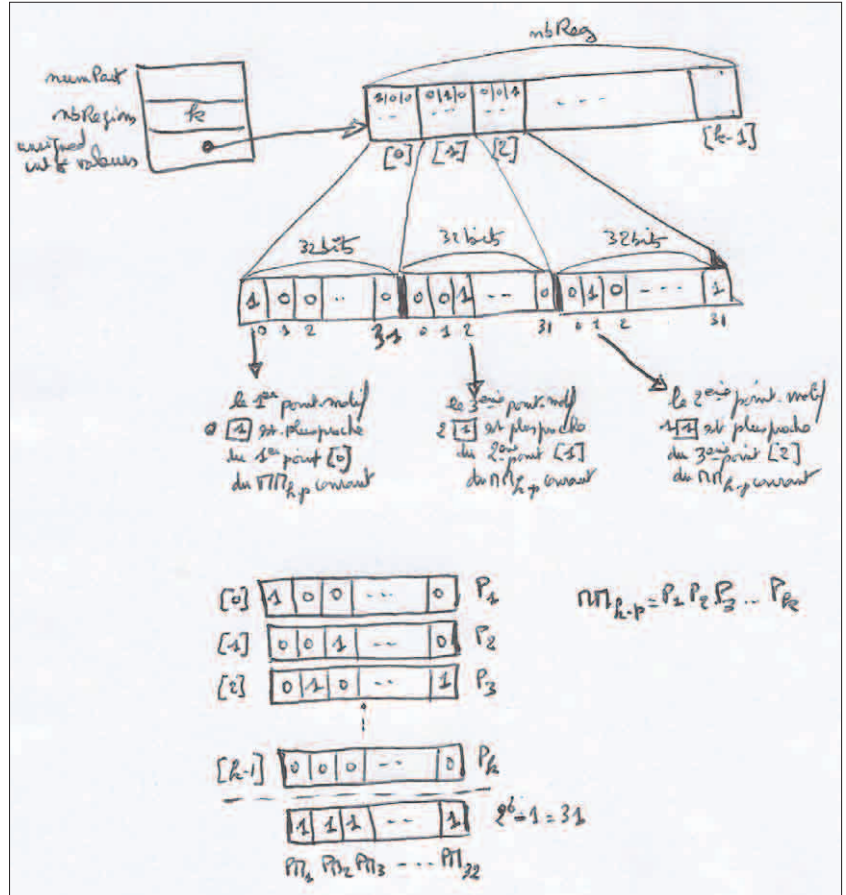 nbReg
numPart
nbRegions k
unsigned
int * valeurs
1|0|0 0|1|0 0|0|1 - - -
[0] [1] [2] [k-1]
32bits 32bits 32bits
1 0 0 .. 0 0 0 1 -- 0 0 1 0 --- 1
0 1 2 31 0 1 2 31 0 1 2 31
le 1er point-motif
0 1 est plus proche
du 1er point [0]
du MMk-p courant
le 3eme point-motif
2 1 est plus proche
du 2eme point [1]
du MMk-p courant
le 2eme point-motif
1 1 est plus proche
du 3eme point [2]
du MMk-p courant
[0] 1 0 0 --- 0 P1
MMk-p = P1 P2 P3 ... Pk
[1] 0 0 1 -- 0 P2
[2] 0 1 0 -- 1 P3
[k-1] 0 0 0 -- 0 Pk
1 1 1 -- 1 2^6-1=31
PM1 PM2 PM3 --- PM32